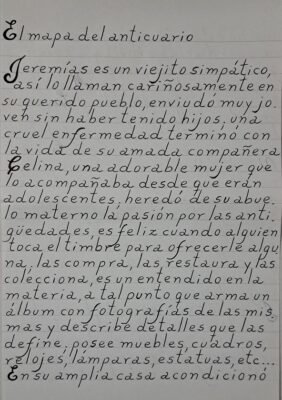 El mapa del anticuario
Jeremías es un viejito simpático,
así lo llaman cariñosamente en
su querido pueblo, enviudó muy jo.
ven sin haber tenido hijos, una
cruel enfermedad terminó con
la vida de su amada compañera
Celina, una adorable mujer que
lo acompañaba desde que eran
adolescentes, heredó de su abue.
lo materno la pasión por las anti.
güedades, es feliz cuando alguien
toca el timbre para ofrecerle algu
na, las compra, las restaura y las
colecciona, es un entendido en la
materia, a tal punto que arma un
álbum con fotografías de las mis.
mas y describe detalles que las
define, posee muebles, cuadros,
relojes, lámparas, estatuas, etc...
En su amplia casa acondicionó